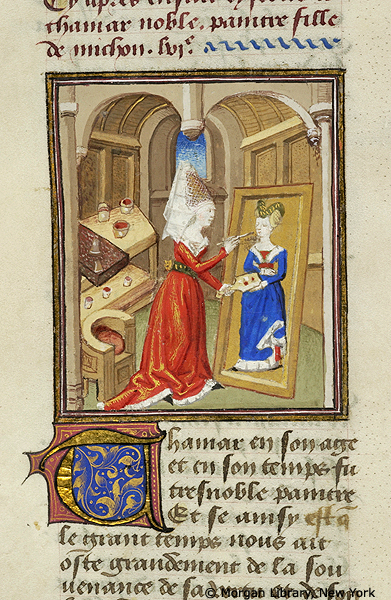 thamar noble. paintre fille
de michon. lvi.e
Thamar en son aage
et en son temps fu
tresnoble paintre
Et se ainsy est q̃
le grant temps nous ait
oste grandement de la sou
© Morgan Library, New York